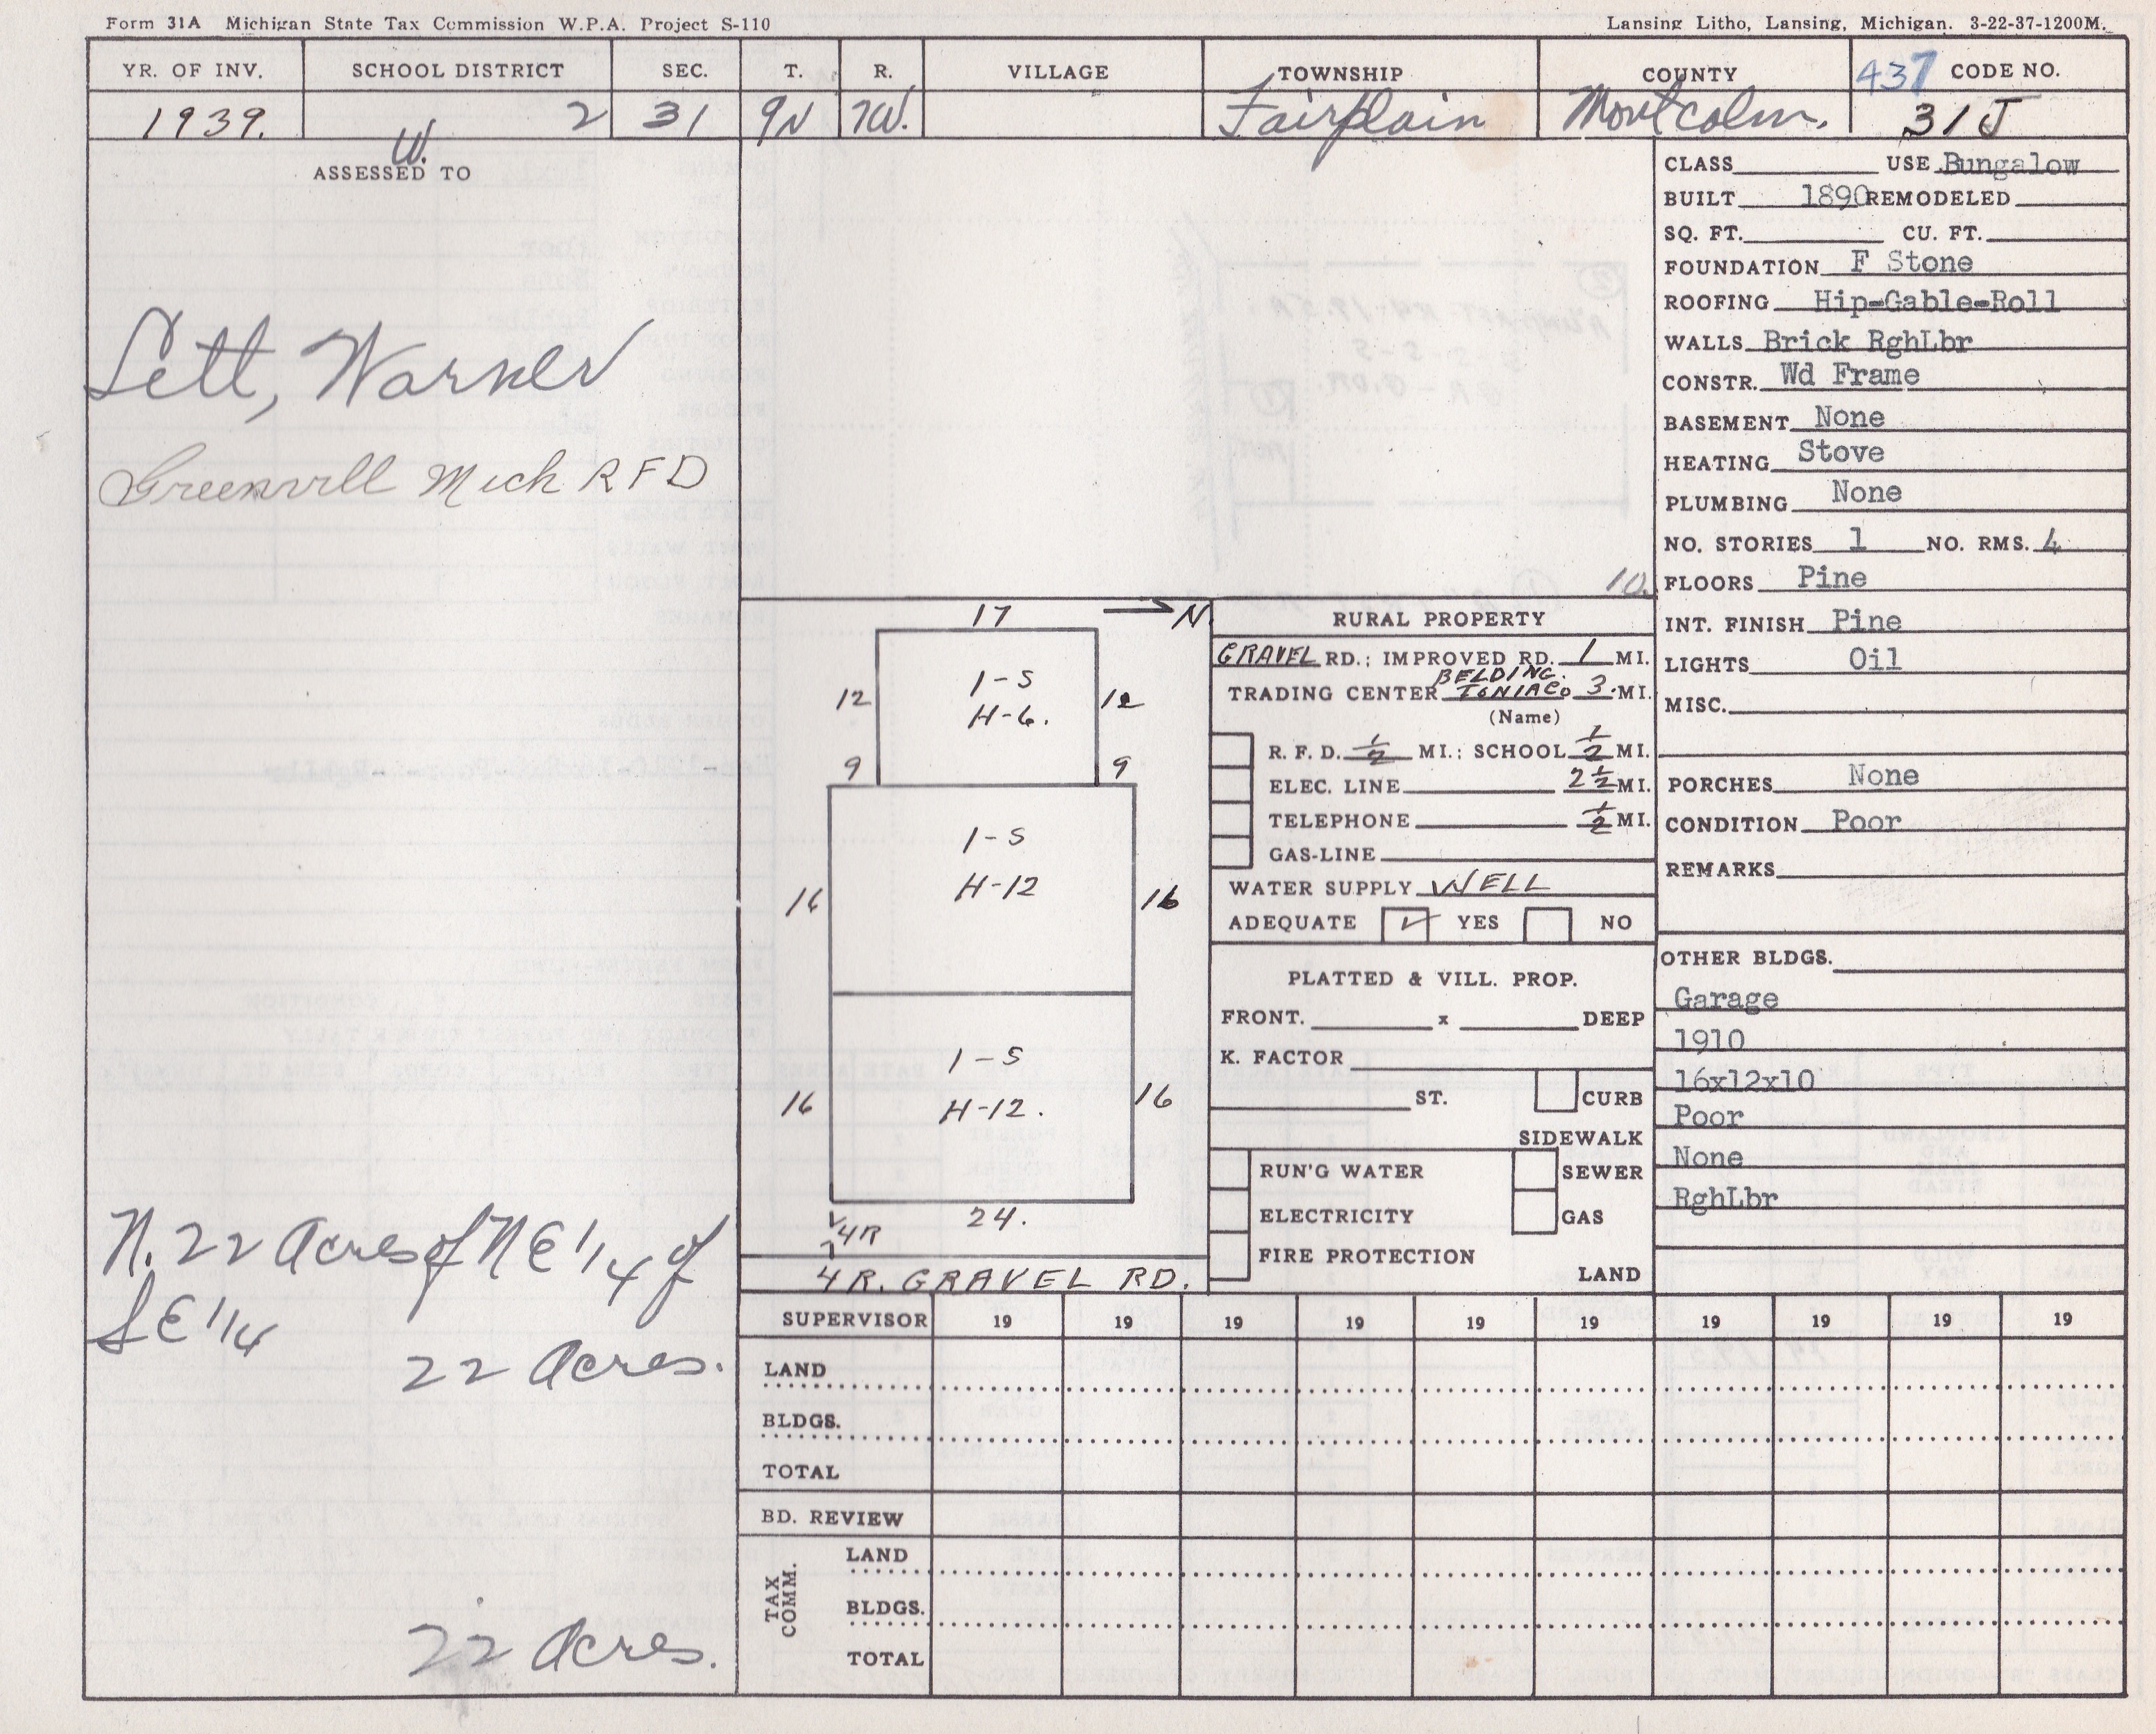 Form 31A Michigan State Tax Commission W.P.A. Project S-110
Lansing Litho, Lansing, Michigan. 3-22-37-1200M.
YR. OF INV. SCHOOL DISTRICT SEC. T. R. VILLAGE TOWNSHIP COUNTY 437 CODE NO.
1939. 2 31 9N 7W. Fairplain Montcalm. 31J
W.
ASSESSED TO
Lett, Warner
Greenvill Mich RFD
N. 22 Acres of NE 1/4 of
SE 1/4
22 Acres.
22 Acres.
10.
17 N
1-S
H-6.
12 12
9 9
1-S
H-12
16 16
1-S
H-12.
16 16
24.
4R
4R. GRAVEL RD.
RURAL PROPERTY
GRAVEL RD.: IMPROVED RD. 1 MI.
BELDING
TRADING CENTER IONIA CO 3. MI.
(Name)
R. F. D. 1/2 MI.: SCHOOL 1/2 MI.
ELEC. LINE 2 1/2 MI.
TELEPHONE 1/2 MI.
GAS-LINE
WATER SUPPLY WELL
ADEQUATE ✓ YES NO
PLATTED & VILL. PROP.
FRONT. x DEEP
K. FACTOR
ST. CURB
SIDEWALK
RUN'G WATER SEWER
ELECTRICITY GAS
FIRE PROTECTION
LAND
CLASS USE Bungalow
BUILT 1890 REMODELED
SQ. FT. CU. FT.
FOUNDATION F Stone
ROOFING Hip-Gable-Roll
WALLS Brick RghLbr
CONSTR. Wd Frame
BASEMENT None
HEATING Stove
PLUMBING None
NO. STORIES 1 NO. RMS. 4
FLOORS Pine
INT. FINISH Pine
LIGHTS Oil
MISC.
PORCHES None
CONDITION Poor
REMARKS
OTHER BLDGS.
Garage
1910
16x12x10
Poor
None
RghLbr
SUPERVISOR 19 19 19 19 19 19 19 19 19 19
LAND
BLDGS.
TOTAL
BD. REVIEW
TAX COMM.
LAND
BLDGS.
TOTAL